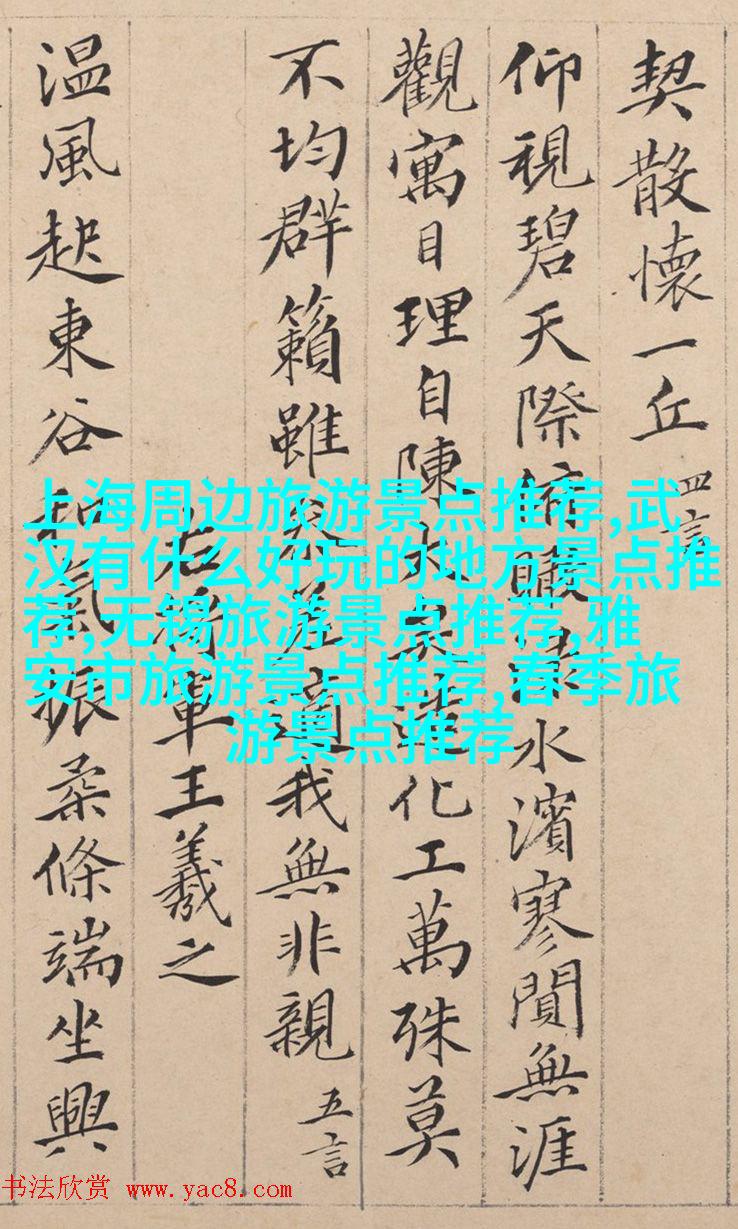 契散懷一丘 四言
仰視碧天際俯瞰淥水濱寥閴無涯
觀寓目理自陳大矣造化工萬殊莫
不均群籟雖參差適我無非親 五言
右將軍王羲之
温風起東谷和氣振柔條端坐興
上海周边旅游景点推荐,武
汉有什么好玩的地方景点推
荐,无锡旅游景点推荐,雅
安市旅游景点推荐,春季旅
游景点推荐
书法欣赏 www.yac8.com